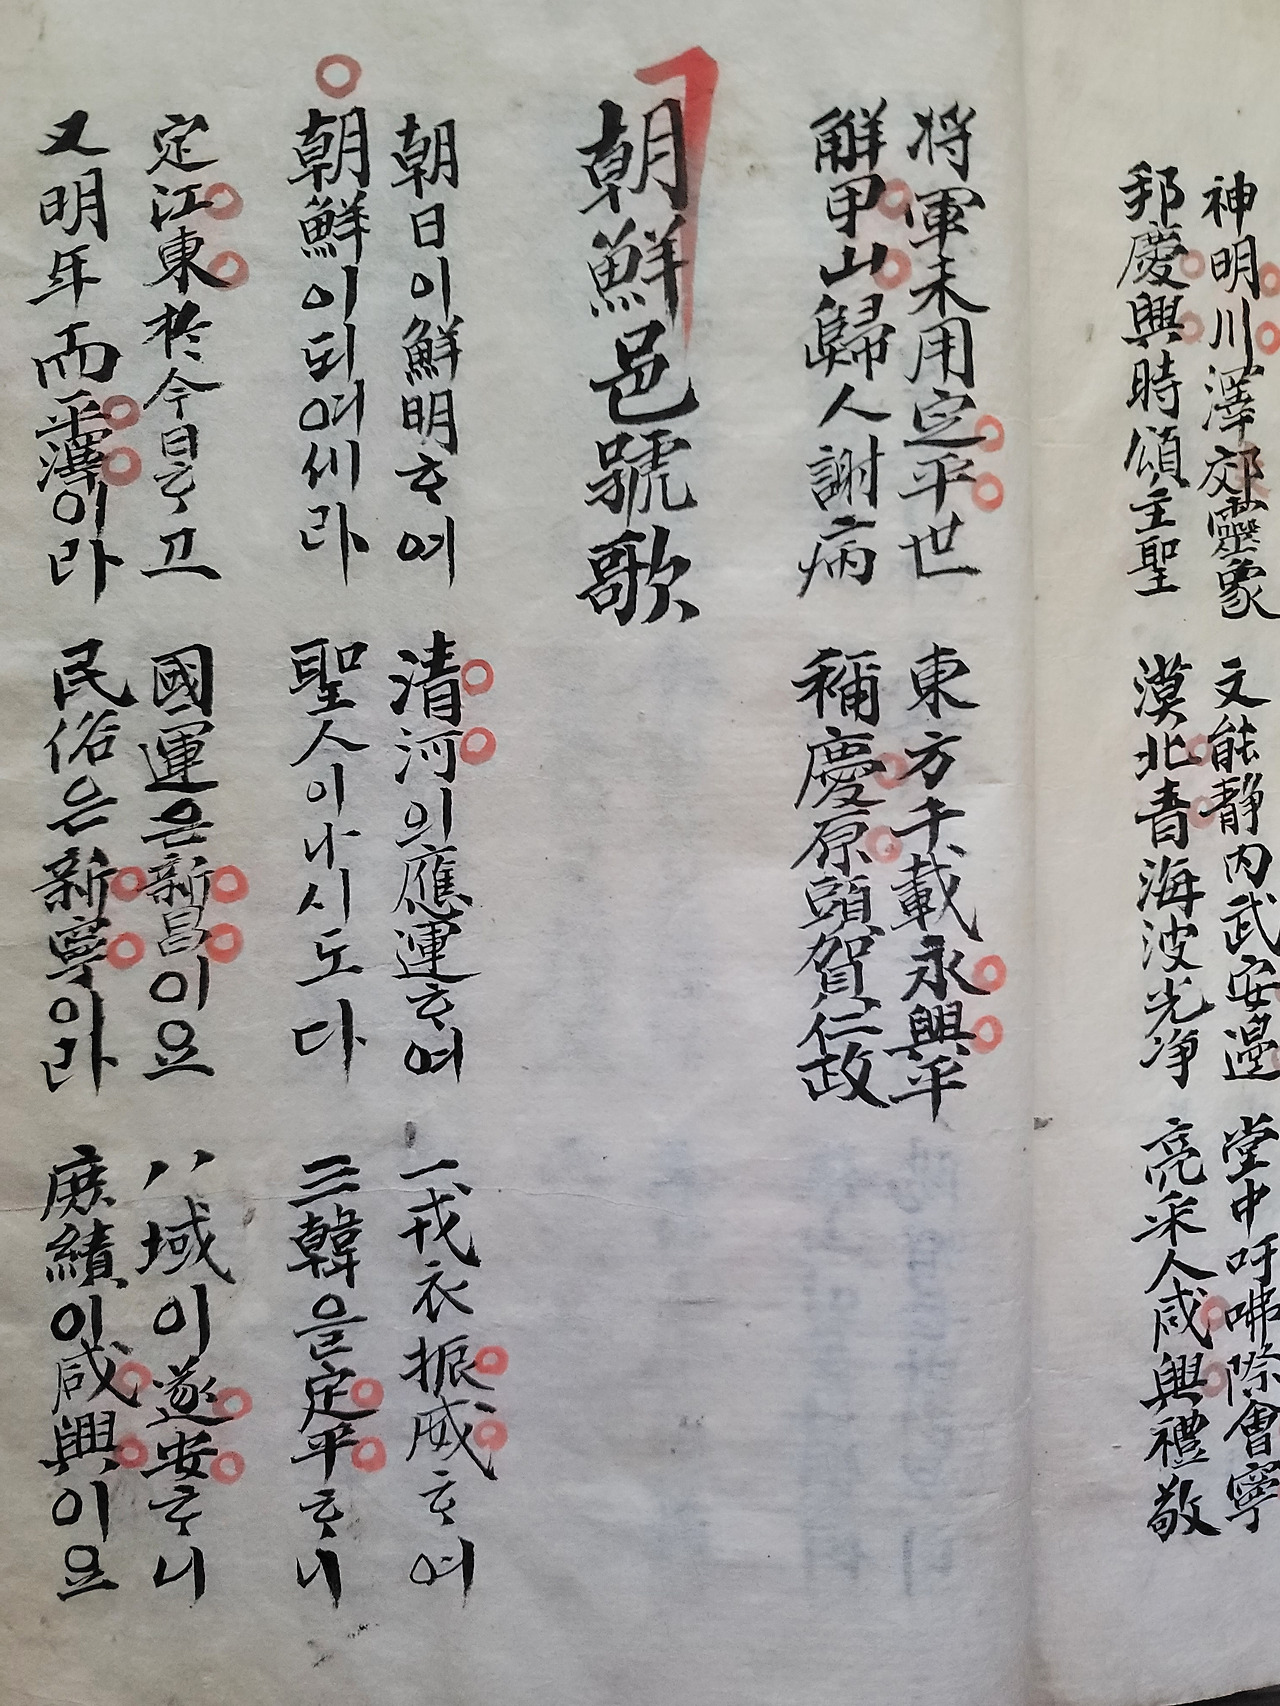 神明川澤郊靈象 文能静内武安邊 堂中吁咈際會寧
邦慶興時頌主聖 漠北青海波光净 亮采人咸興禮敬
将軍未用定平世 東方千載永興平
觧甲山歸人謝病 稱慶原頭賀仁政
朝鮮邑號歌
朝日이鮮明ᄒᆞ여 清河의應運ᄒᆞ여 一戎衣振威ᄒᆞ여
朝鮮이되여세라 聖人이나시도다 三韓을定平ᄒᆞ니
定江東於今日ᄒᆞ고 國運은新昌이요 八域이遂安ᄒᆞ니
又明年而平澤이라 民俗은新寧이라 庶績이咸興이요